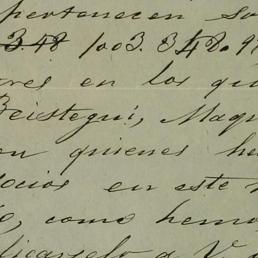 pertenecen so
3.48 1003. 348.9
res en los qu
Beistegui, Maqu
en quienes he
ocios en este
como hemo
licarselo a V.